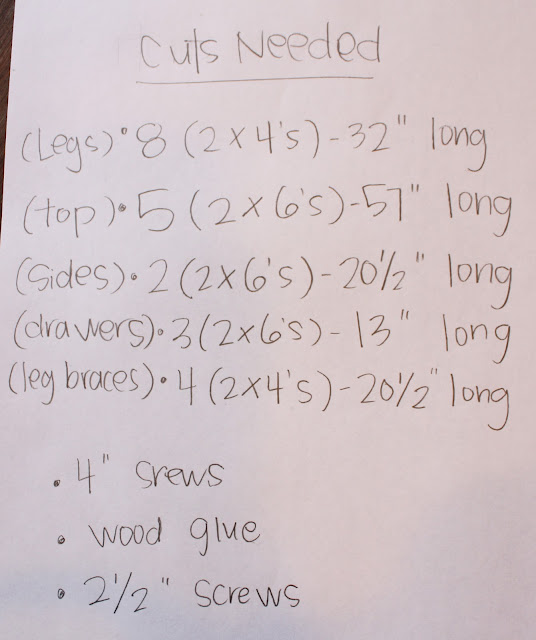 Cuts Needed
(Legs)• 8 (2x4's)-32" long
(top)• 5 (2x6's)-57" long
(sides)• 2 (2x6's)-20½" long
(drawers)• 3 (2x6's)-13" long
(leg braces)• 4 (2x4's)-20½" long
• 4" srews
• wood glue
• 2½" screws